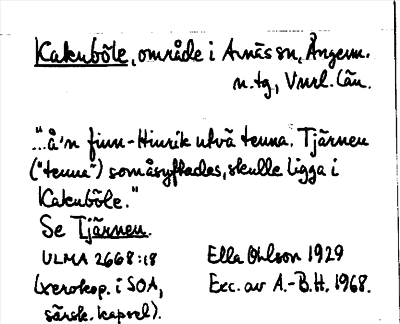 Kakuböle, område i Arnäs sn, Ångerm.
n.tg, Vnrl. län.
"...å'n finn-Hinrik utvä tenna. Tjärnen
("tenna") som åsyftades, skulle ligga i
Kakuböle."
Se Tjärnen.
ULMA 2668:18 Ella Ohlson 1929
(xerokop. i SOA, Exc. av A.-B.H. 1968.
särsk. kapsel).